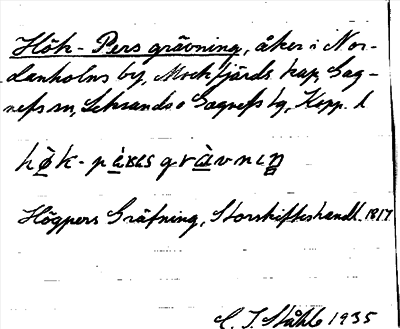 Hök-Pers grävning, åker i Nor-
danholns by, Mockfjärds kap, Gag-
nefs sn, Leksands o Gagnefs tg, Kopp. l
Högpers Gräfning, Storskifteshandl. 1817
C. J. Ståhle 1935